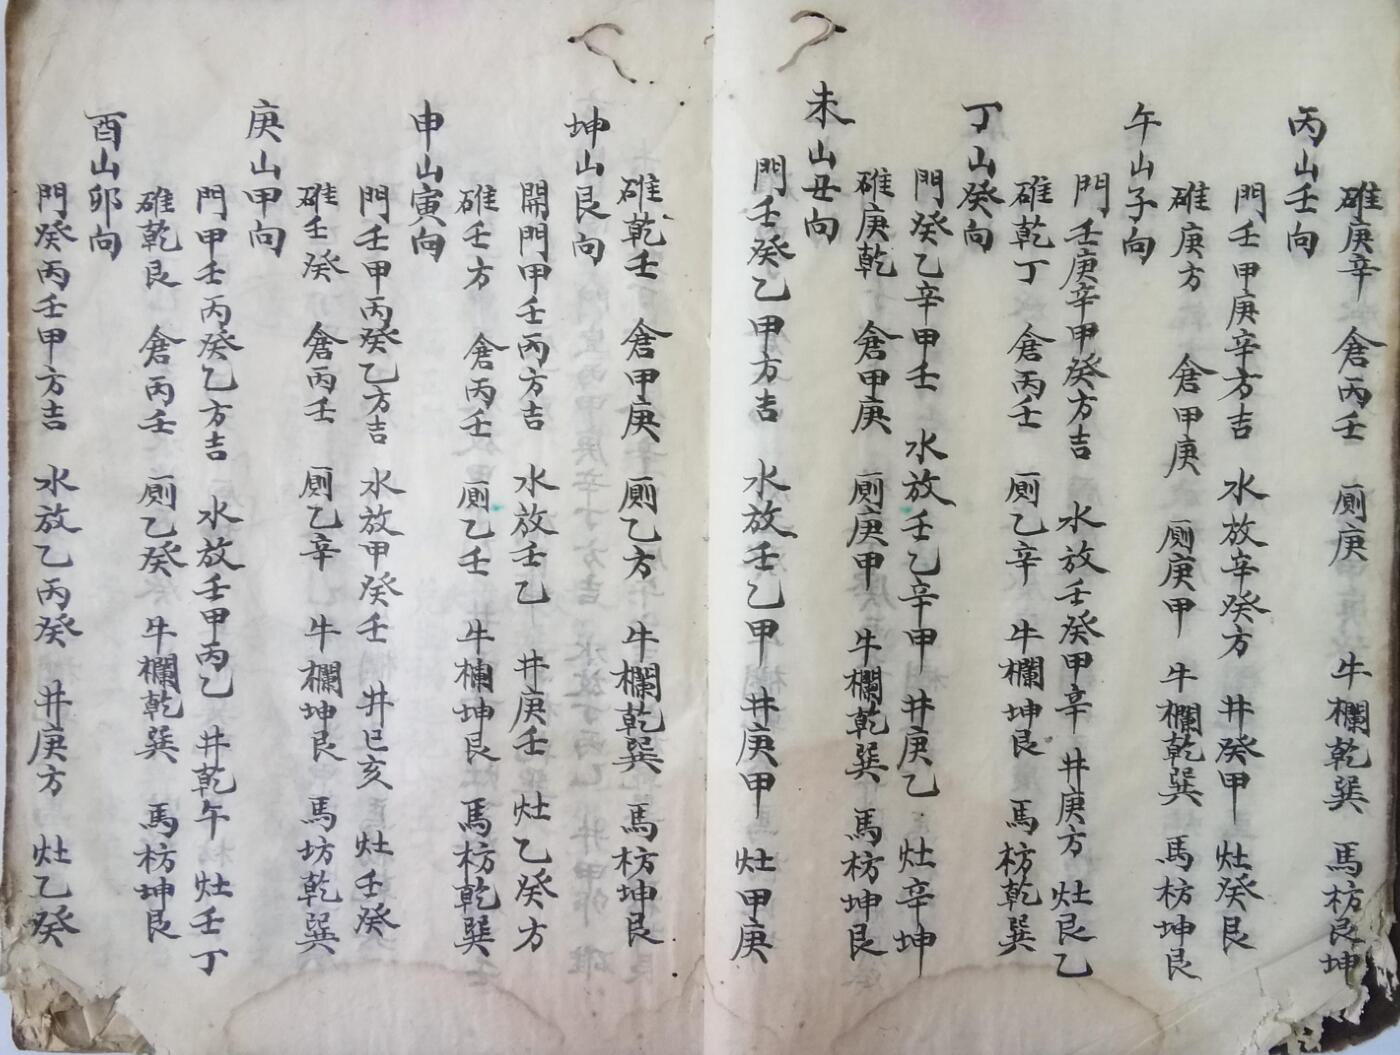 碓庚辛　倉丙壬　厠庚　牛欄乾巽　馬枋艮坤
丙山壬向
門壬甲庚辛方吉　水放辛癸方　井癸甲　灶癸艮
碓庚方　倉甲庚　厠庚甲　牛欄乾巽　馬枋坤艮
午山子向
門壬庚辛甲癸方吉　水放壬癸甲辛　井庚方　灶艮乙
碓乾丁　倉丙壬　厠乙辛　牛欄坤艮　馬枋乾巽
丁山癸向
門癸乙辛甲壬　水放壬乙辛甲　井庚乙　灶辛坤
碓庚乾　倉甲庚　厠庚甲　牛欄乾巽　馬枋坤艮
未山丑向
門壬癸乙甲方吉　水放壬乙甲　井庚甲　灶甲庚
碓乾壬　倉甲庚　厠乙方　牛欄乾巽　馬枋坤艮
坤山艮向
開門甲壬丙方吉　水放壬乙　井庚壬　灶乙癸方
碓壬方　倉丙壬　厠乙壬　牛欄坤艮　馬枋乾巽
申山寅向
門壬甲丙癸乙方吉　水放甲癸壬　井巳亥　灶壬癸
碓壬癸　倉丙壬　厠乙辛　牛欄坤艮　馬坊乾巽
庚山甲向
門甲壬丙癸乙方吉　水放壬甲丙乙　井乾午　灶壬丁
碓乾艮　倉丙壬　厠乙癸　牛欄乾巽　馬枋坤艮
酉山卯向
門癸丙壬甲方吉　水放乙丙癸　井庚方　灶乙癸